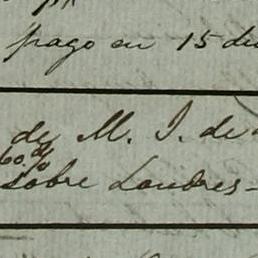 pago en 15 de
de M. I. de
60 d/
sobre Londres-